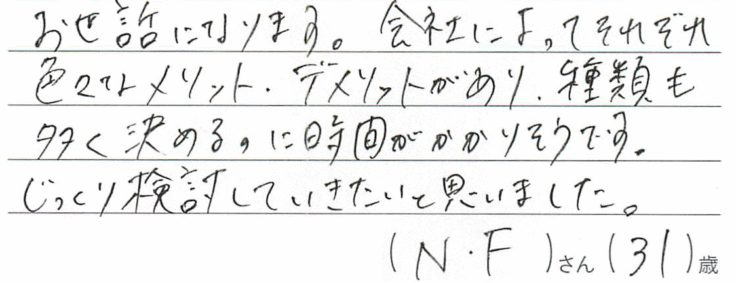 お世話になります。会社によってそれぞれ
色々なメリット・デメリットがあり、種類も
多く決めるのに時間がかかりそうです。
じっくり検討していきたいと思いました。
(N・F)さん(31)歳